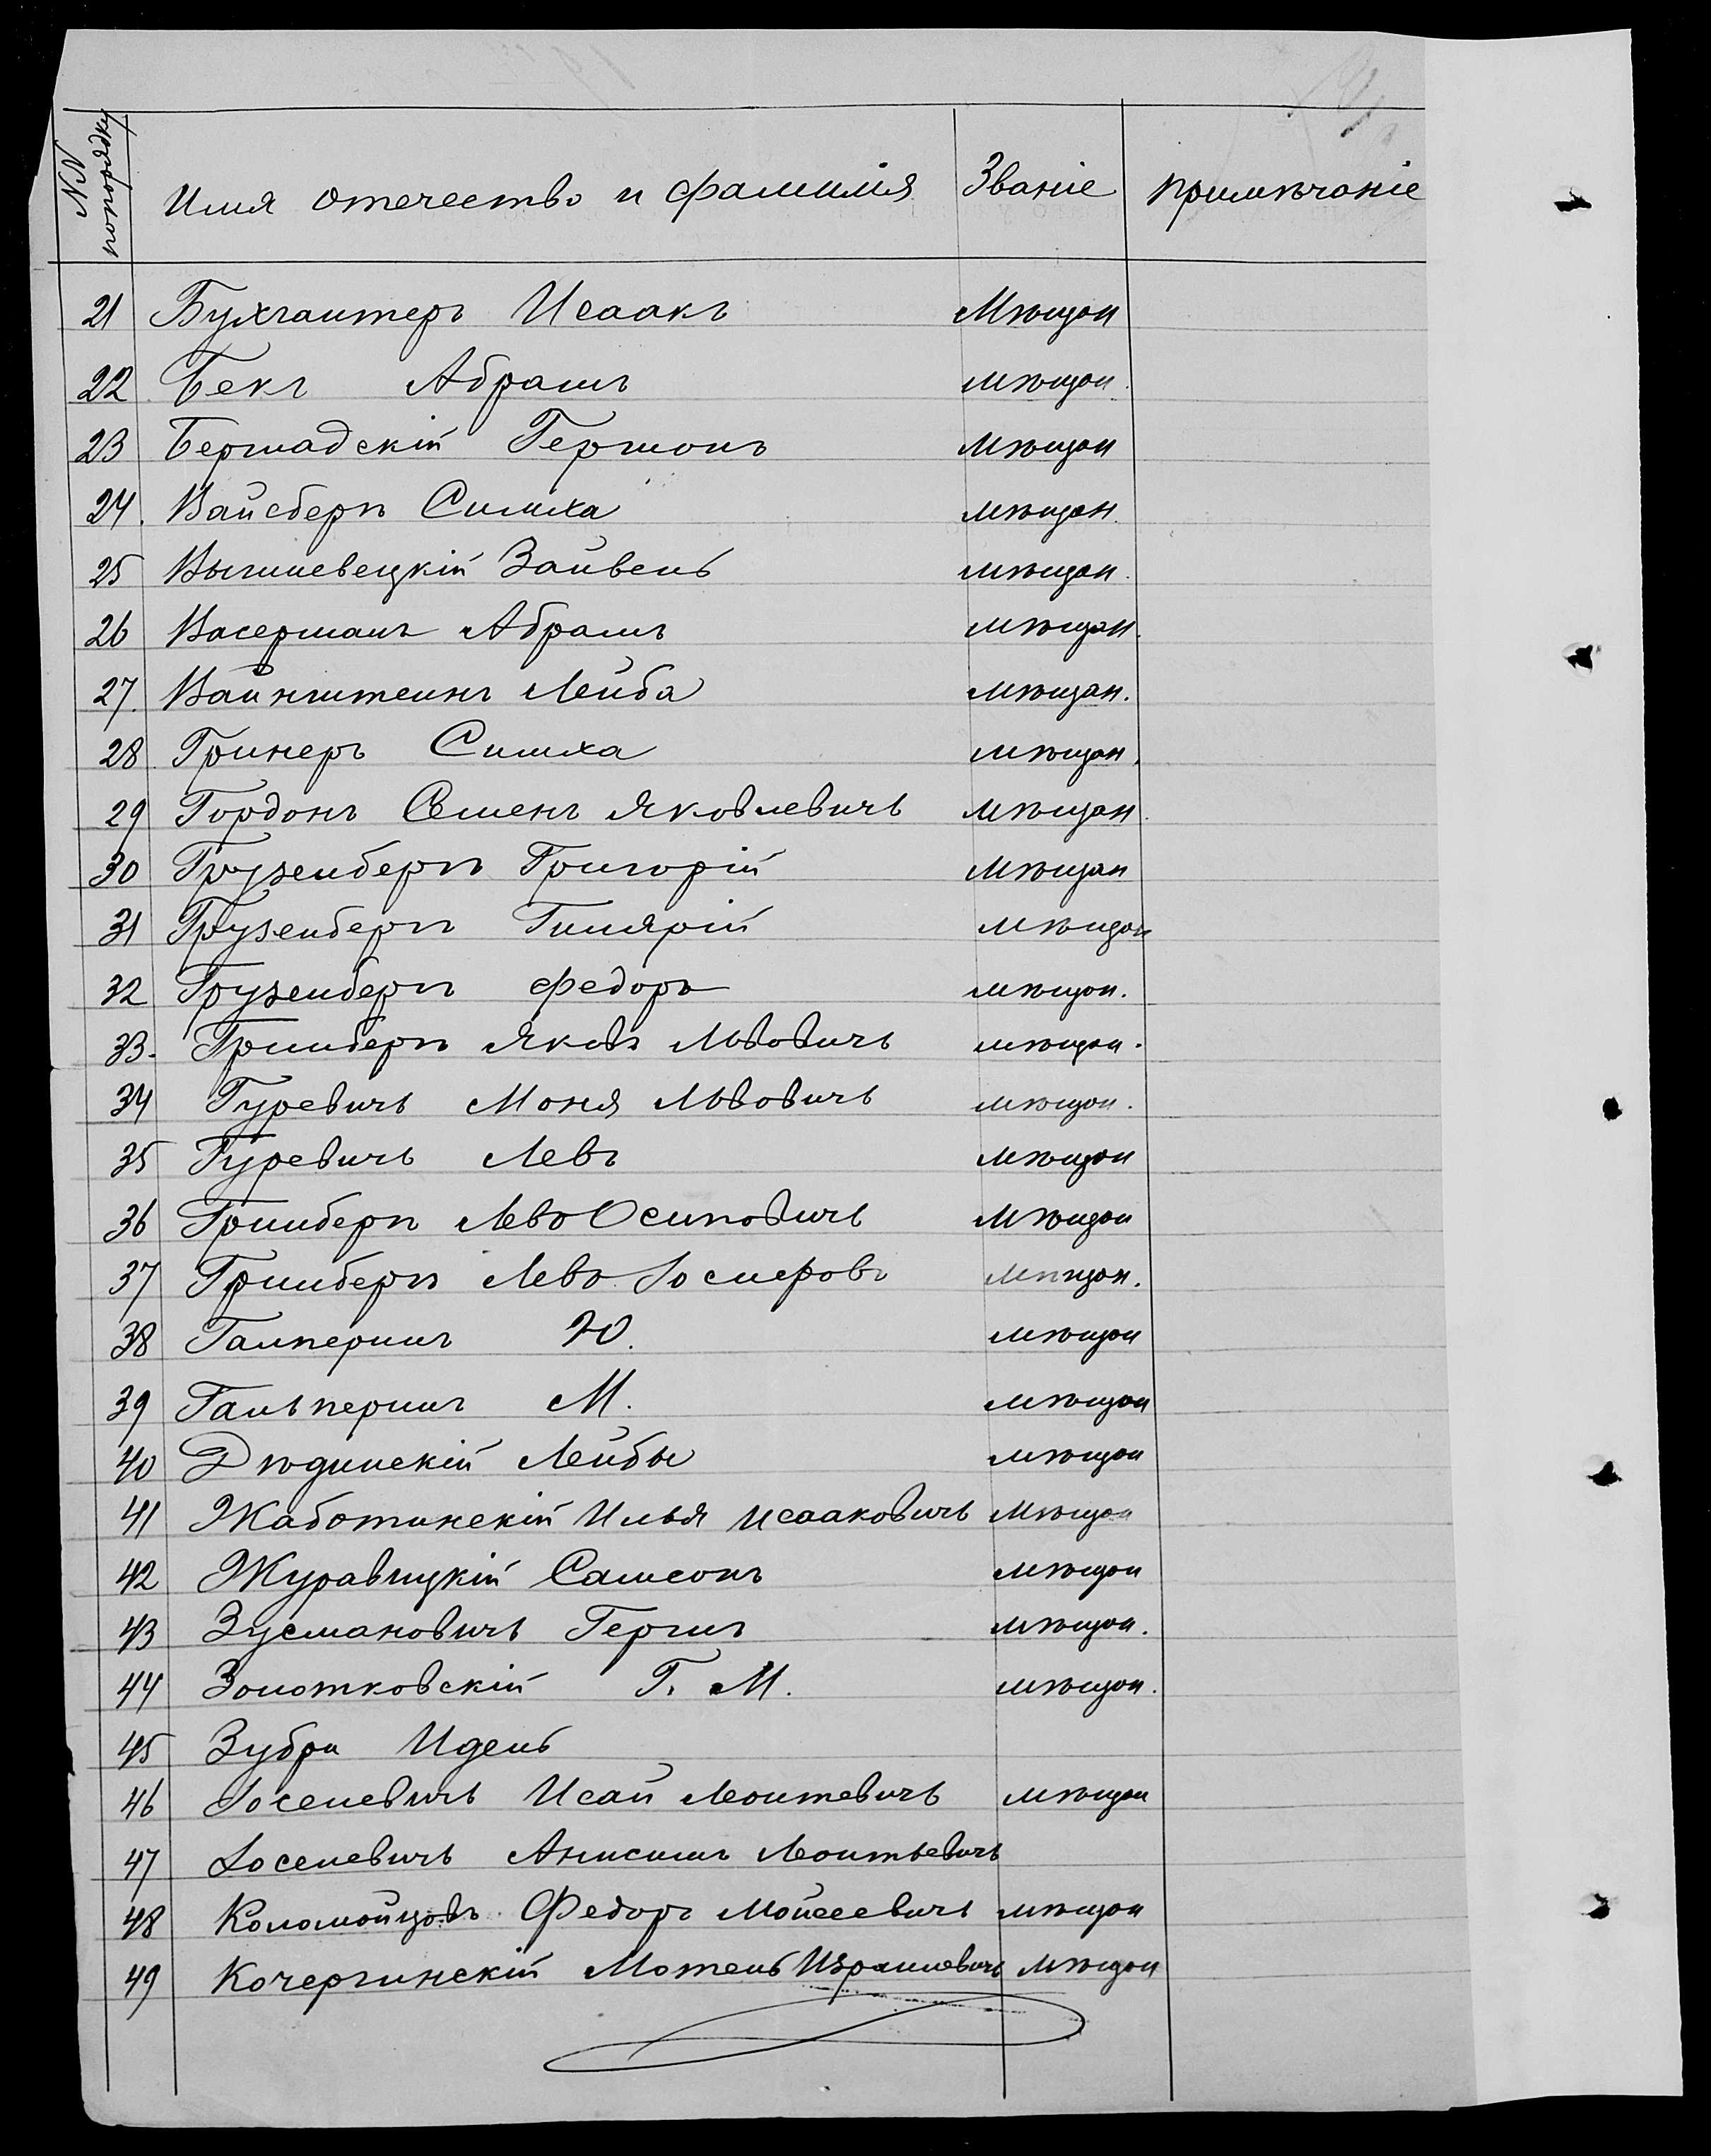 NN попорядку Имя отечество и фамилія Званіе примѣчаніе
21 Бухгалтеръ Исаакъ Мѣщан
22 Бекъ Абрамъ мѣщан.
23 Бершадскій Гершонъ мѣщан
24. Вайсбергъ Симха мѣщан.
25 Вышневецкій Зайвель мѣщан.
26 Васерманъ Абрамъ мѣщан.
27. Вайнштейнъ Лейба мѣщан.
28. Гринеръ Симха мѣщан.
29 Гордонъ Семенъ Яковлевичъ мѣщан.
30 Грузенбергъ Григорій мѣщан
31 Грузенбергъ Гилярій мѣщан
32 Грузенбергъ Федоръ мѣщан.
33. Гринбергъ Яковъ Львовичъ мѣщан.
34 Гуревичъ Моня Львовичъ мѣщан.
35 Гуревичъ Левъ мѣщан
36 Гринбергъ Левъ Осиповичъ мѣщан
37 Гринбергъ Левъ Іосифовъ мѣщан.
38 Галперинъ Ю. мѣщан
39 Гальперинъ М. мѣщан
40 Дюдинскій Лейбы мѣщан
41 Жаботинскій Илья Исааковичъ мѣщан
42 Журавицкій Самсонъ мѣщан
43 Зусмановичъ Гершъ мѣщан.
44 Золотковскій Г. М. мѣщан.
45 Зубри Идель
46 Іоселевичъ Исай Леонтевичъ мѣщан
47 Іоселевичъ Анисимъ Леонтьевичъ
48 Коломойцовъ Федоръ Мойсеевичъ мѣщан
49 Кочергинскій Мотель Израилевичъ мѣщан